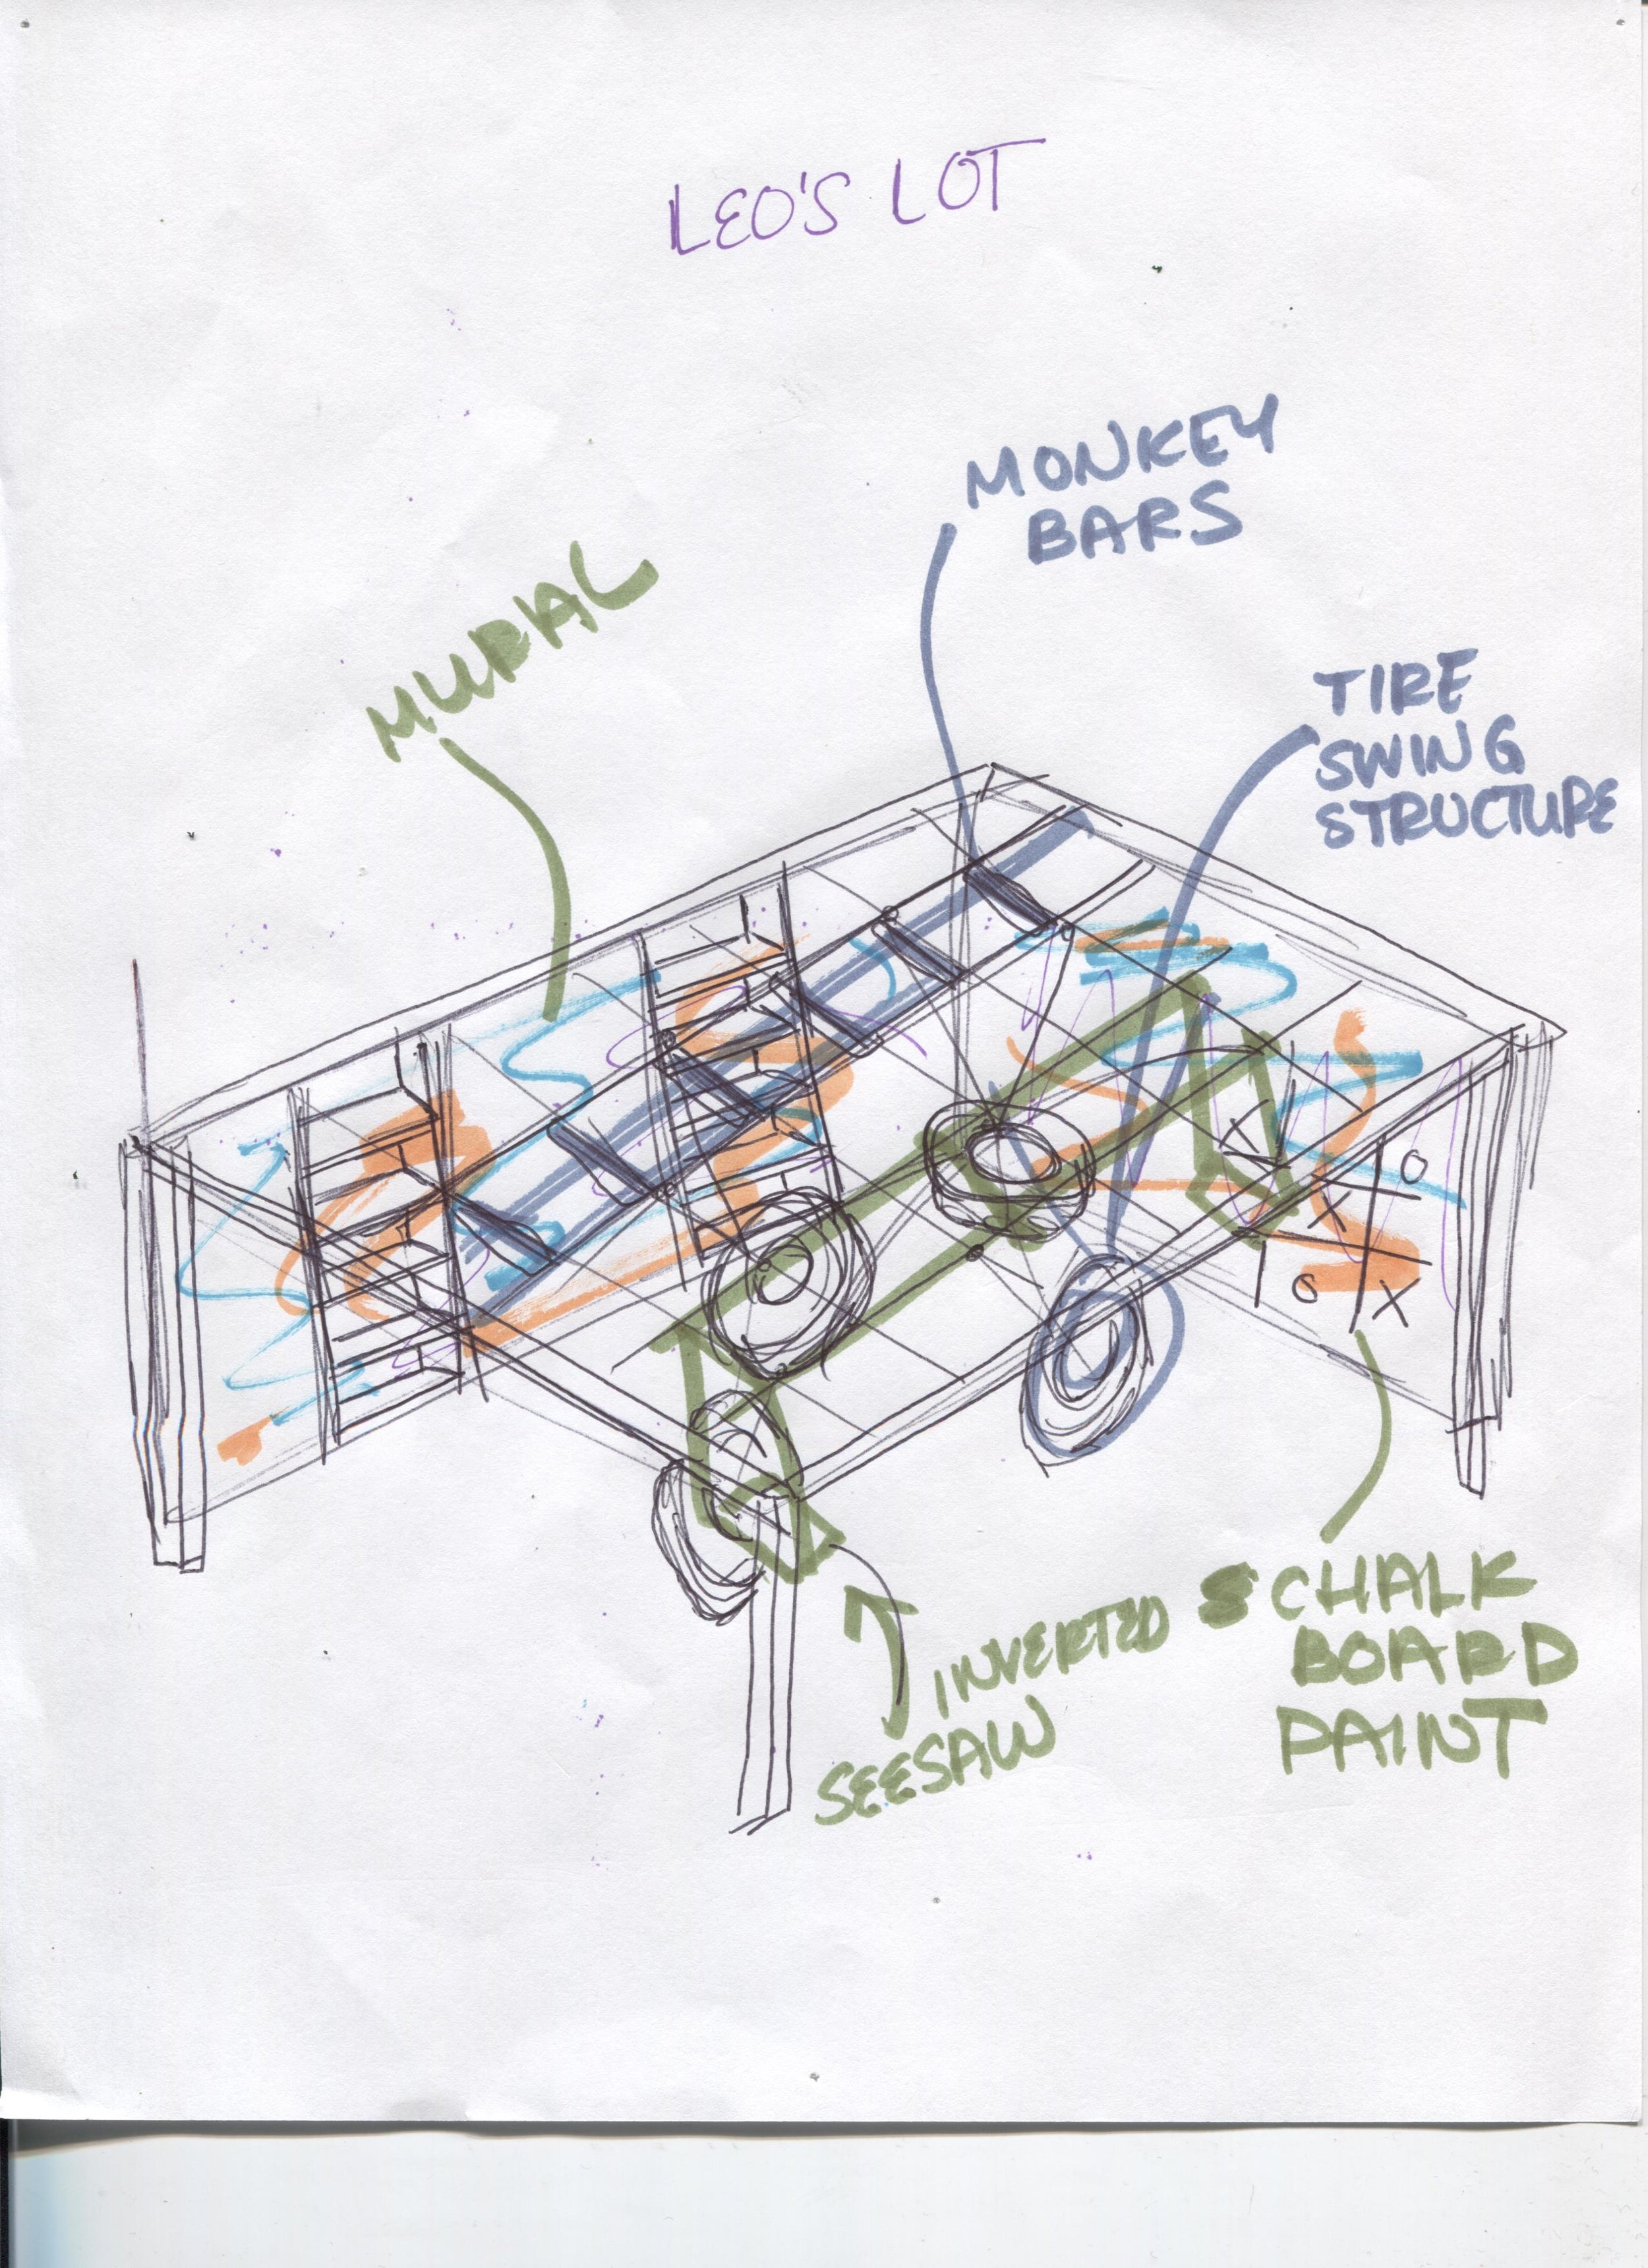 LEO'S LOT
MONKEY
BARS
MURAL
TIRE
SWING
STRUCTURE
X O
O X
INVERTED
SEESAW
CHALK
BOARD
PAINT